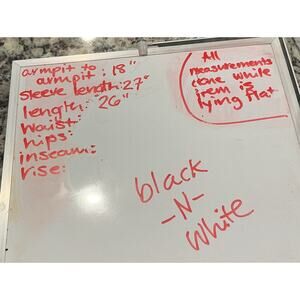 armpit to
armpit: 18"
sleeve length: 27"
length: 26"
waist:
hips:
inseam:
rise:
All
measurements
done while
item is
lying flat
black
-N-
White